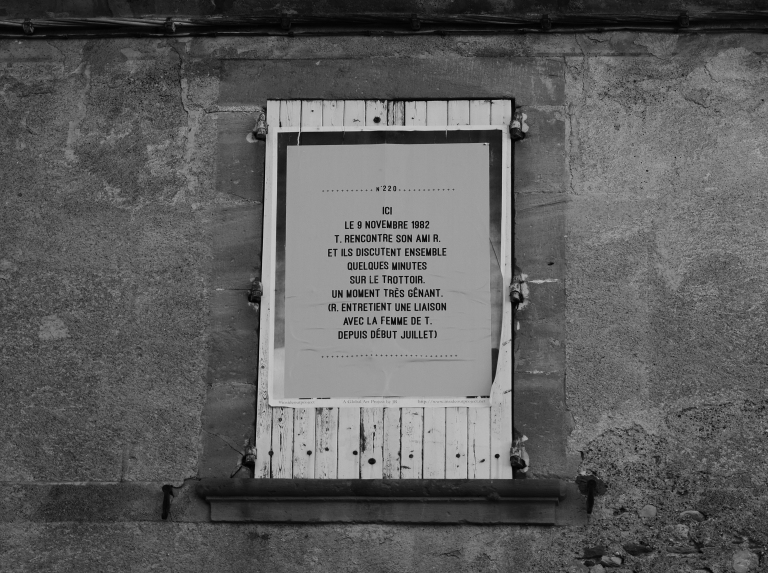 N°220
ICI
LE 9 NOVEMBRE 1982
T. RENCONTRE SON AMI R.
ET ILS DISCUTENT ENSEMBLE
QUELQUES MINUTES
SUR LE TROTTOIR.
UN MOMENT TRÈS GÊNANT.
(R. ENTRETIENT UNE LIAISON
AVEC LA FEMME DE T.
DEPUIS DÉBUT JUILLET)